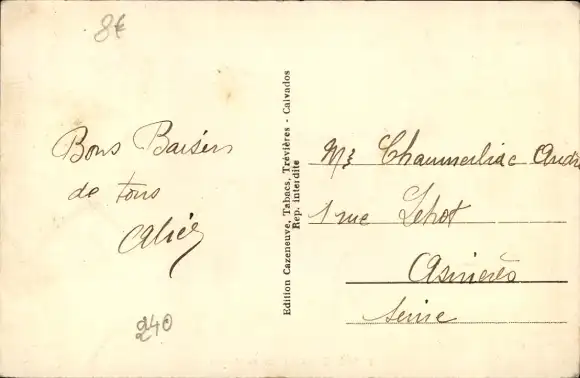 8€
Bons Baisers
de tous
Alice
240
Edition Cazeneuve, Tabacs, Trévières - Calvados
Rep. interdite
Mr Chaumerliac André
1 rue Lehot
Asnières
Seine